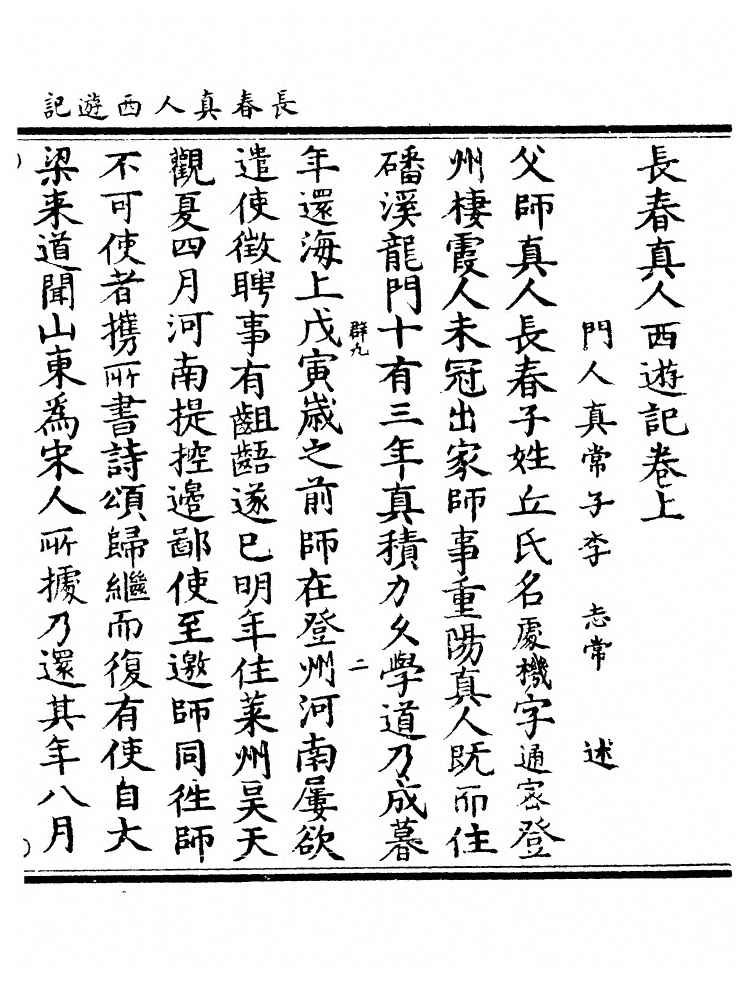 長春真人西遊記
長春真人西遊記卷上
門人真常子李志常述
父師真人長春子姓丘氏名處機字通密登
州棲霞人未冠出家師事重陽真人既而住
磻溪龍門十有三年真積力久學道乃成暮
群九 二
年還海上戊寅歲之前師在登州河南屢欲
遣使徵聘事有齟齬遂已明年住萊州昊天
觀夏四月河南提控邊鄙使至邀師同往師
不可使者攜所書詩頌歸繼而復有使自大
梁来道聞山東為宋人所據乃還其年八月